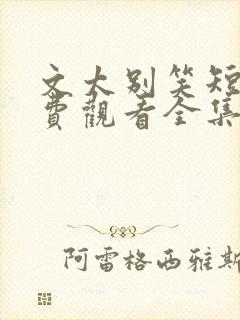 文大别笑短
費觀看全集
阿雷格西雅斯